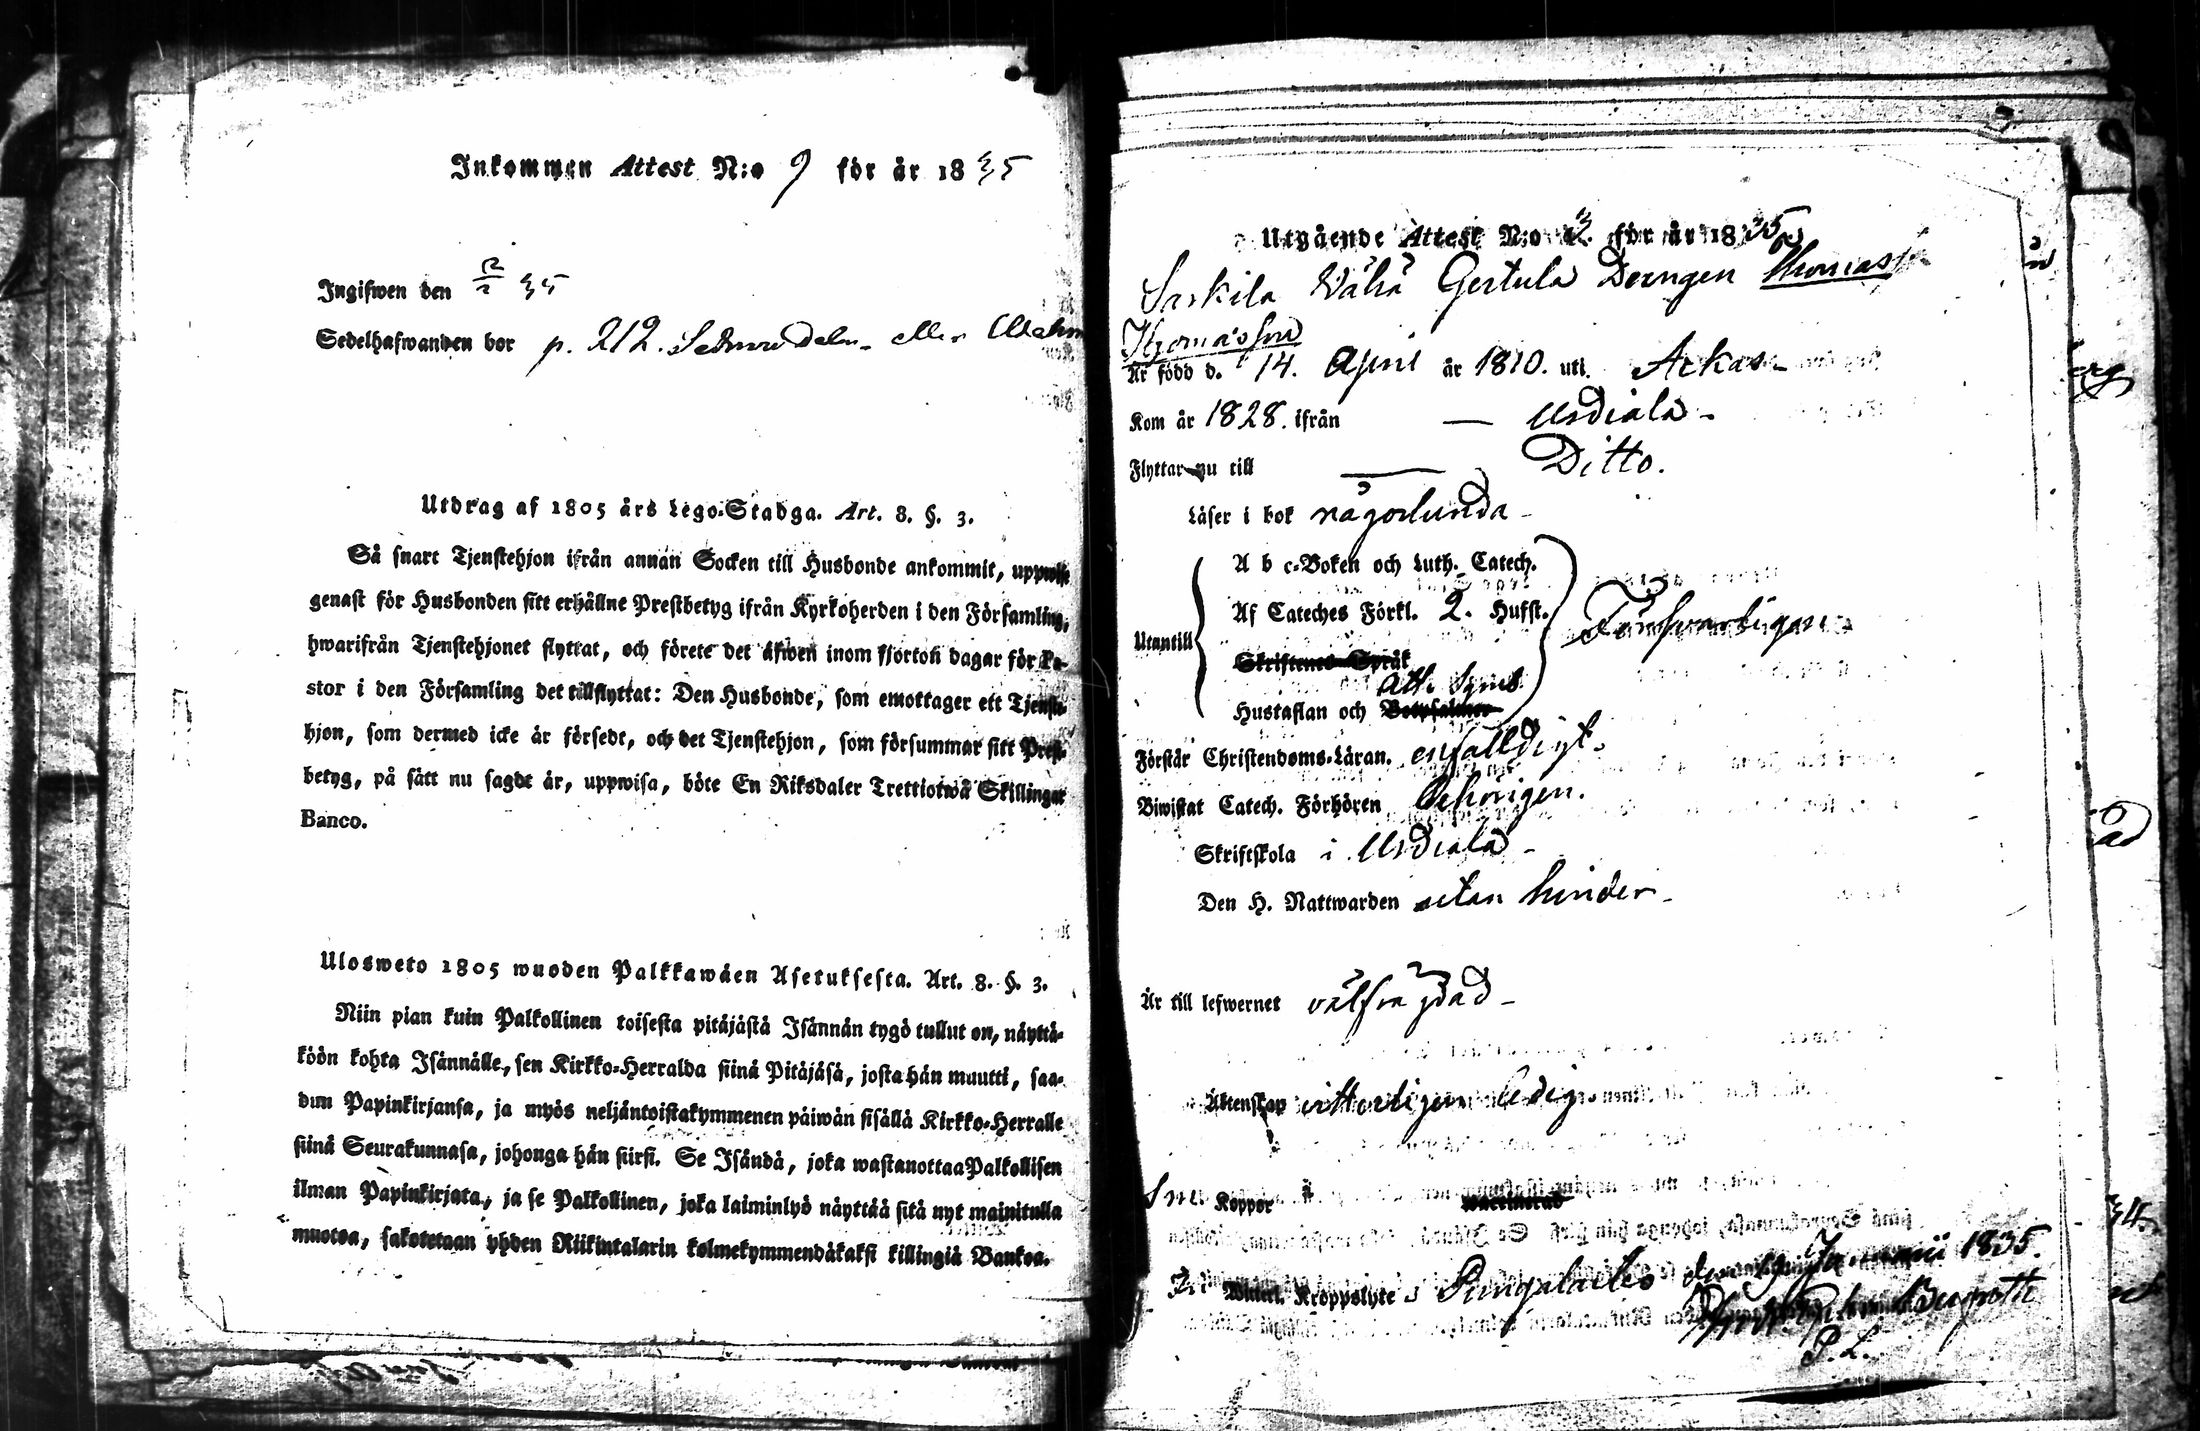 Inkommen Attest N:o 9 för år 1835
Ingifwen den
Sedelhafwanden bor p. 212.
Utdrag af 1805 års Lego-Stadga. Art. 8. §. 3.
Så snart Tjenstehjon ifrån annan Socken till Husbonde ankommit, uppwise
genast för Husbonden sitt erhållne Prestbetyg ifrån Kyrkoherden i den Församling,
hwarifrån Tjenstehjonet flyttat, och förete det äfwen inom fjorton dagar för Pa-
stor i den Församling det tillflyttat: Den Husbonde, som emottager ett Tjenste-
hjon, som dermed icke är försedt, och det Tjenstehjon, som försummar sitt Prest-
betyg, på sätt nu sagdt är, uppwisa, böte En Riksdaler Trettiotwå Skillingar
Banco.
Ulosweto 1805 wuoden Palkkawäen Asetuksesta. Art. 8. §. 3.
Niin pian kuin Palkollinen toisesta pitäjästä Isännän tygö tullut on, näyttä-
köön kohta Isännälle, sen Kirkko-Herralda siinä Pitäjäsä, josta hän muutti, saa-
dun Papinkirjansa, ja myös neljäntoistakymmenen päiwän sisällä Kirkko-Herralle
siinä Seurakunnasa, johonga hän siirsi. Se Isändä, joka wastanottaa Palkollisen
ilman Papinkirjata, ja se Palkollinen, joka laiminlyö näyttää sitä nyt mainitulla
muotoa, sakotetaan yhden Riikintalarin kolmekymmendäkaksi killingiä Bankoa.
Utgående Attest N:o 3 för år 1835
Sarkila Wähä Gertula Drengen Thomas
Thomasson
Är född d. 14. April år 1810. uti Ackas
Kom år 1828. ifrån — Urdiala
Flyttar nu till — Ditto.
Läser i bok någorlunda
A b c-Boken och Luth. Catech.
Utantill Af Cateches Förkl. 2. Hufst. Försvarligen
Skriftenes Språk
Ath. Symb.
Hustaflan och Botpsalmer
Förstår Christendoms-Läran. enfalldigt.
Biwistat Catech. Förhören behörigen.
Skriftskola i Urdiala
Den H. Nattwarden utan hinder
Är till lefwernet välfrägdad
Äktenskap witterligen ledig
Koppor
Kroppslyte Pungalaitio den 19 Januarii 1835.
P. L.